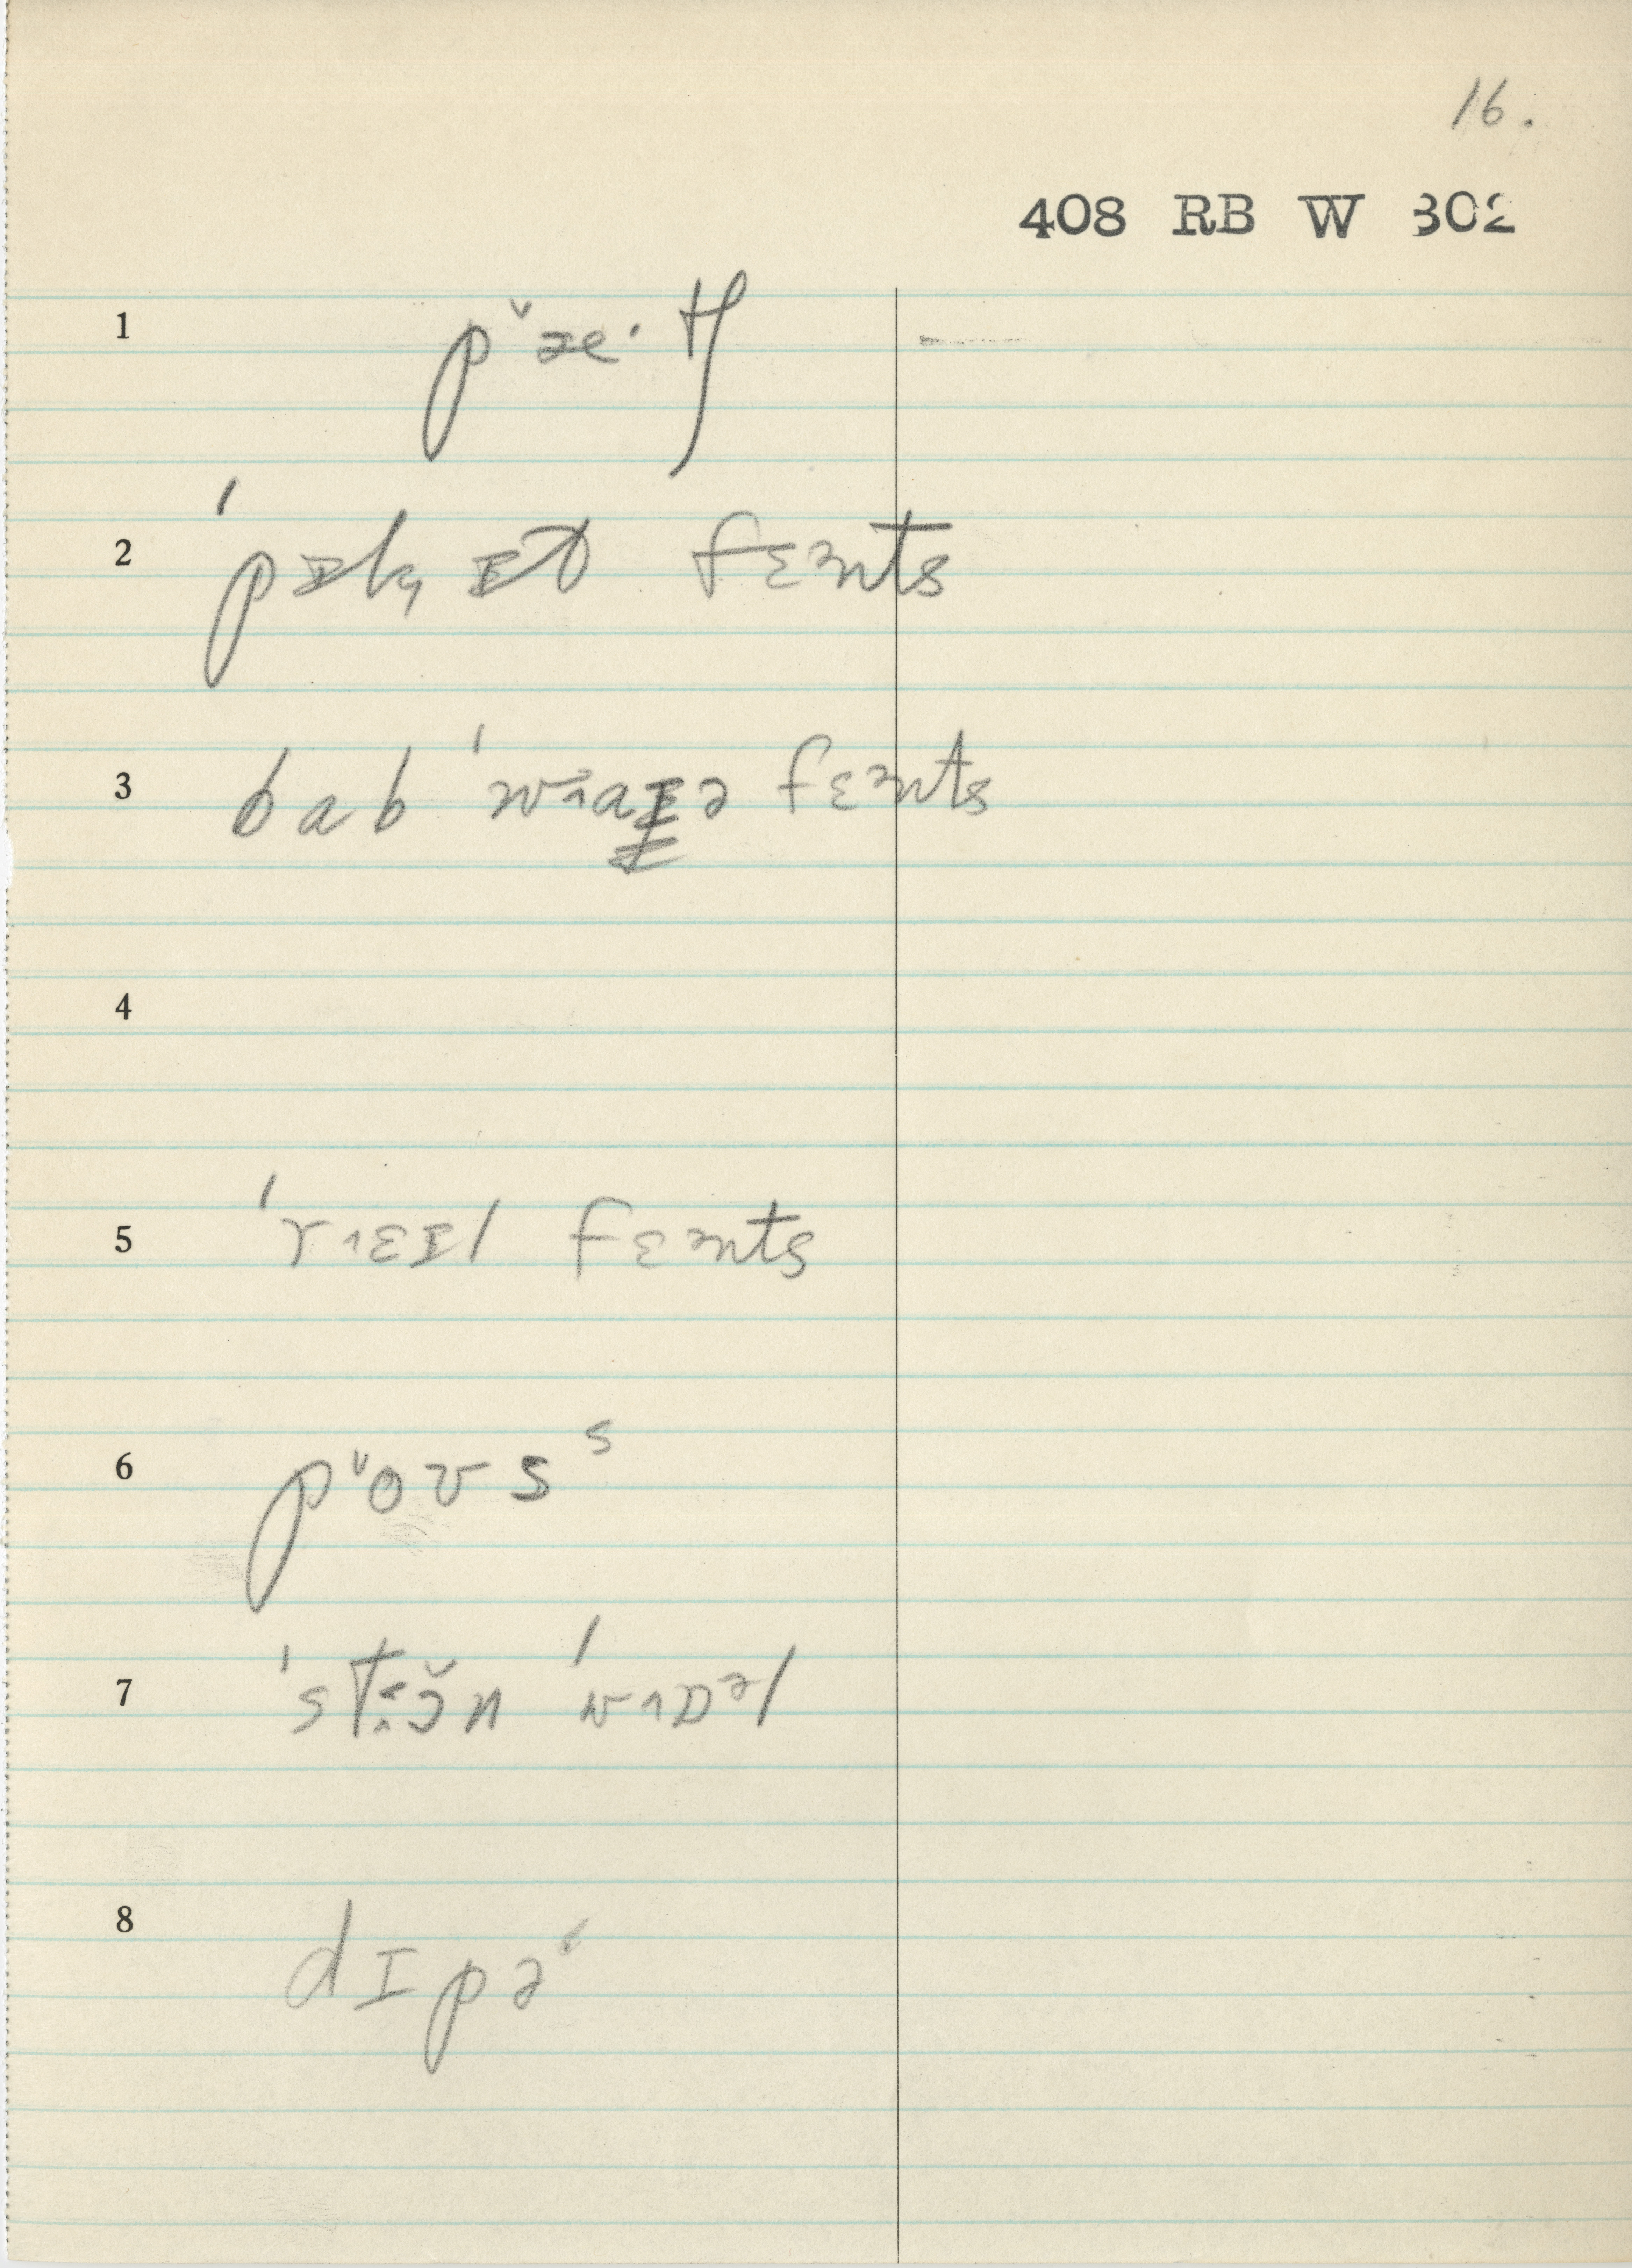 16.
408 RB W 302
1 pˇæ·tʃ
2 ˈpɪkɪt fɛənts
3 bab ˈwaɪə fɛənts
4
5 ˈrɛɪl fɛənts
6 pˇoʊsˢ
7 ˈstɔ̆n ˈwɒᵊl
8 dɪpə